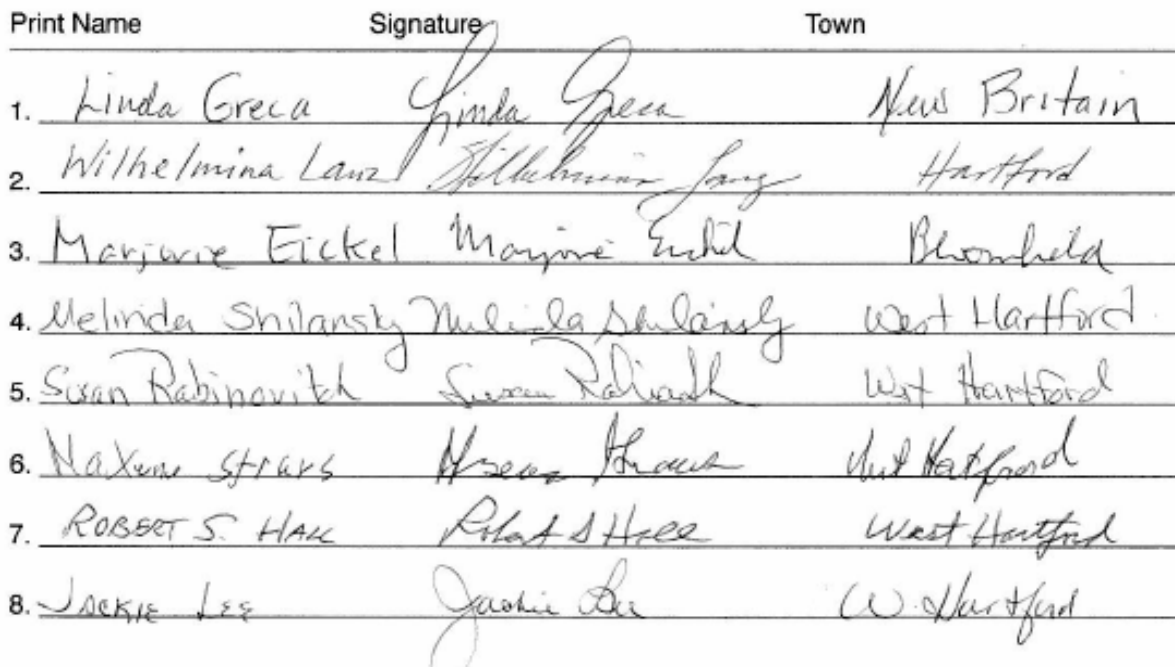 Print Name Signature Town
1. Linda Greca Linda Greca New Britain
2. Wilhelmina Lanz Wilhelmina Lanz Hartford
3. Marjorie Eickel Marjorie Eickel Bloomfield
4. Melinda Shilansky Melinda Shilansky West Hartford
5. Susan Rabinovitch Susan West Hartford
6. Straus West Hartford
7. ROBERT S. HALL Robert S Hall West Hartford
8. JACKIE LEE Jackie Lee W. Hartford